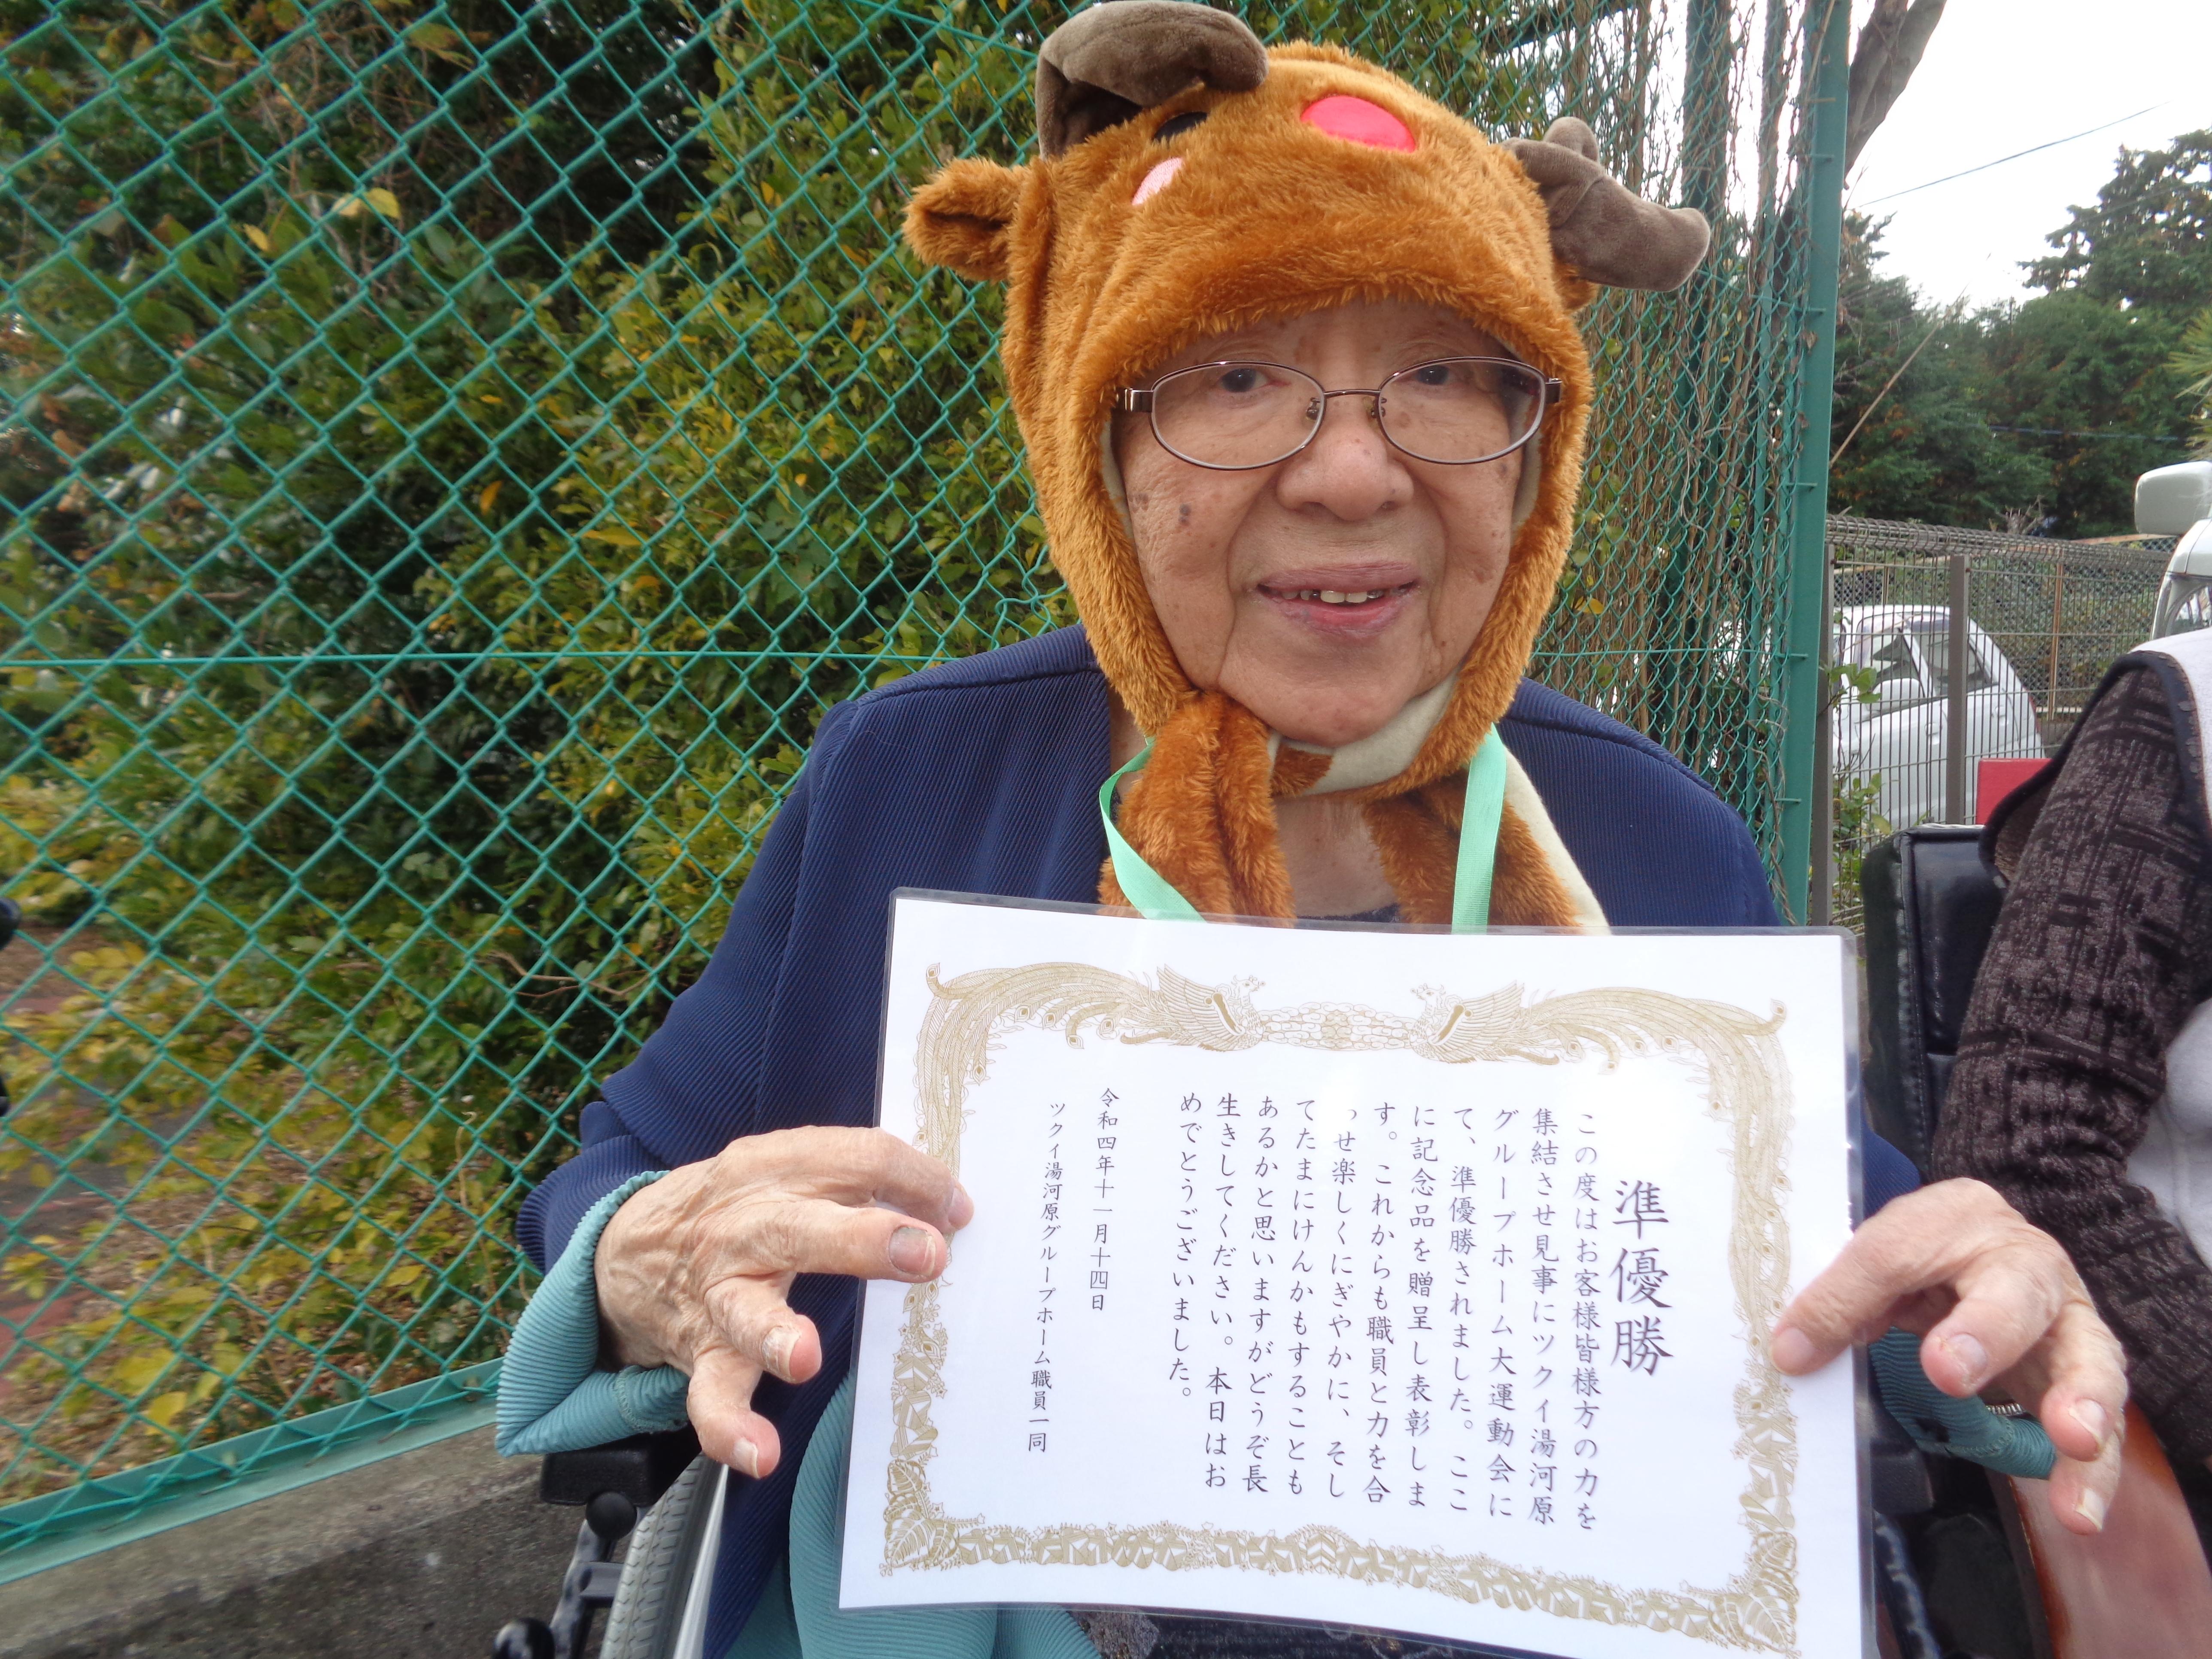 準優勝
この度はお客様皆様方の力を
集結させ見事にツクイ湯河原
グループホーム大運動会に
て、準優勝されました。ここ
に記念品を贈呈し表彰しま
す。これからも職員と力を合
っせ楽しくにぎやかに、そし
てたまにけんかもすることも
あるかと思いますがどうぞ長
生きしてください。本日はお
めでとうございました。
令和四年十一月十四日
ツクイ湯河原グループホーム職員一同